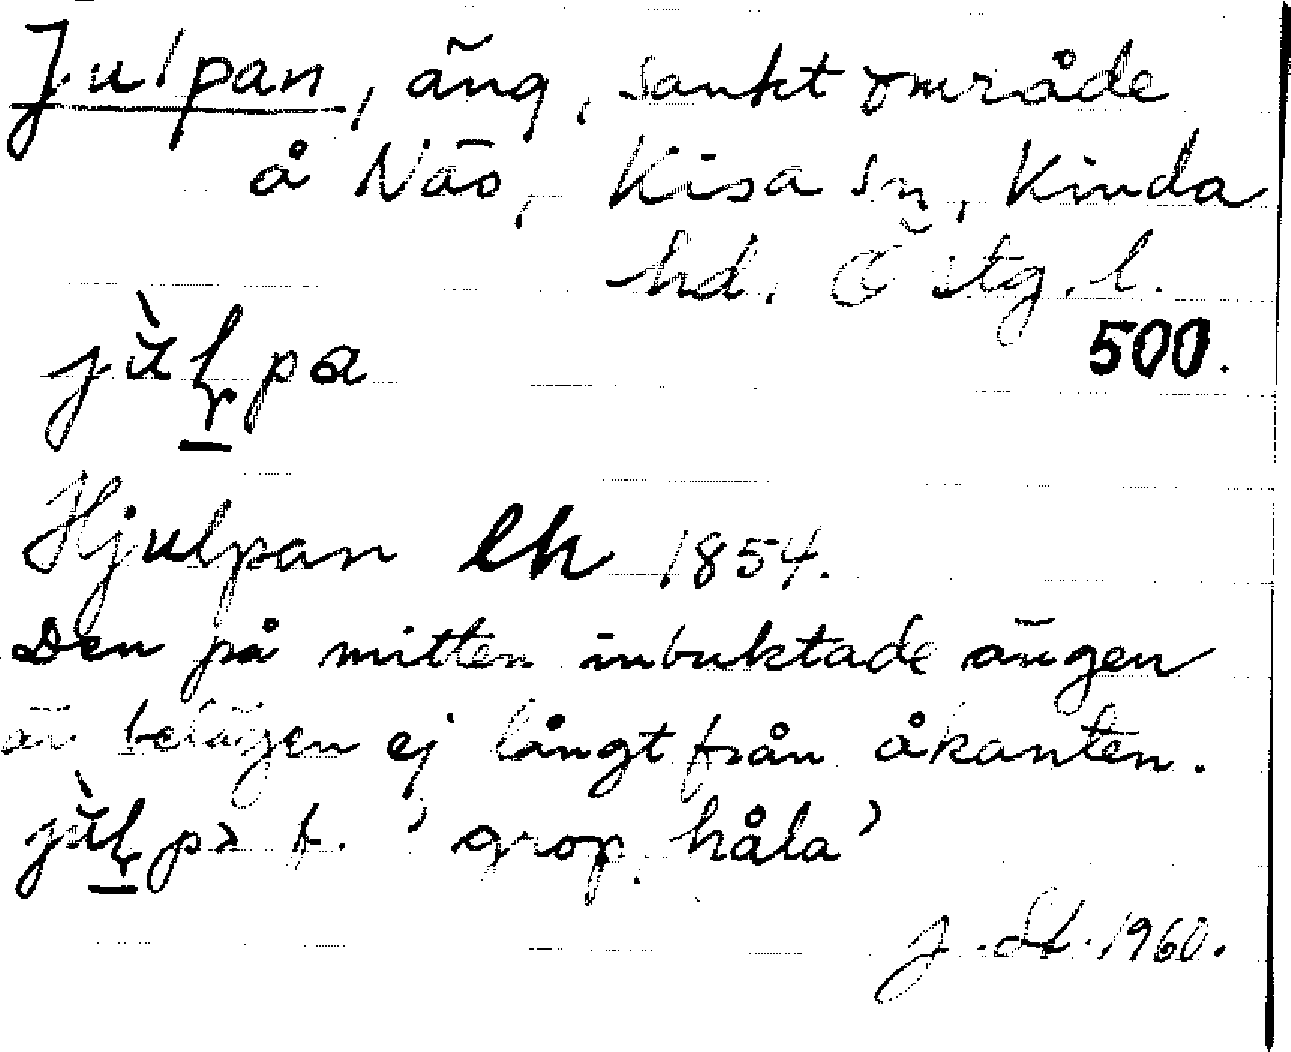 Julpan, äng, sankt område
å Näs, Kisa sn, Kinda
hd. Östg. l.
500.
Hjulpan lh 1854.
Den på mitten inbuktade ängen
är belägen ej långt från åkanten.
f. 'grop, håla'
J. St. 1960.